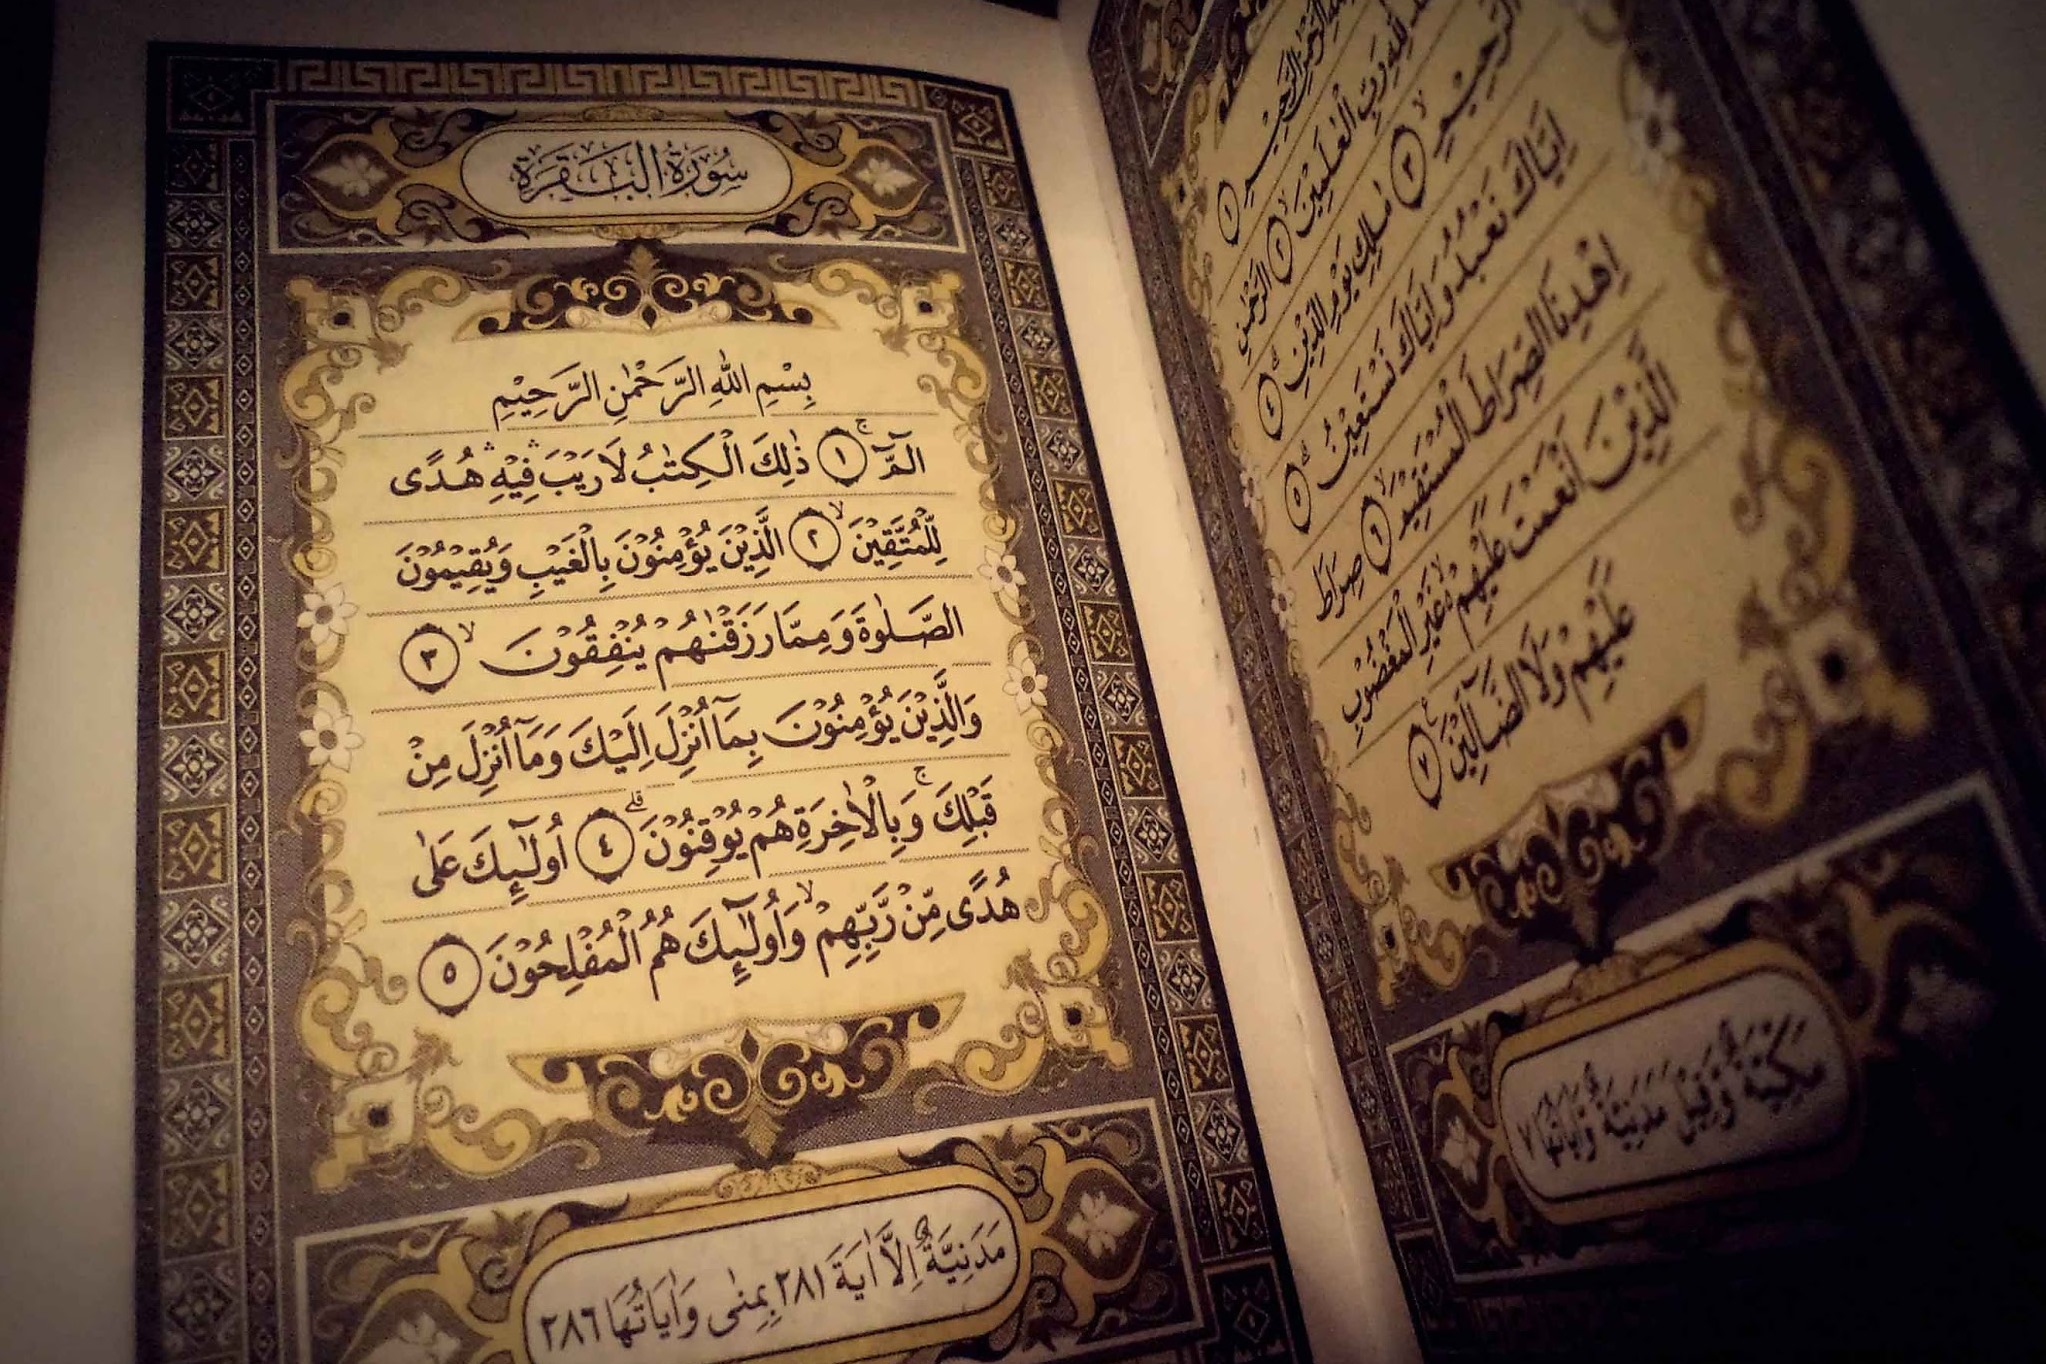 بِسْمِ اللهِ الرَّحْمٰنِ الرَّحِيْمِ
لِلّٰهِ رَبِّ الْعٰلَمِيْنَ ٢ الرَّحْمٰنِ
الرَّحِيْمِ ٣ مٰلِكِ يَوْمِ الدِّيْنِ ٤
اِيَّاكَ نَعْبُدُ وَاِيَّاكَ نَسْتَعِيْنُ ٥
اِهْدِنَا الصِّرَاطَ الْمُسْتَقِيْمَ ٦ صِرَاطَ
الَّذِيْنَ اَنْعَمْتَ عَلَيْهِمْ غَيْرِ الْمَغْضُوْبِ
عَلَيْهِمْ وَلَا الضَّاۤلِّيْنَ ٧
مَكِّيَّةٌ وَقِيْلَ مَدَنِيَّةٌ وَاٰيَاتُهَا ٧
سُوْرَةُ الْبَقَرَةِ
بِسْمِ اللهِ الرَّحْمٰنِ الرَّحِيْمِ
الۤمّۤ ۚ ١ ذٰلِكَ الْكِتٰبُ لَا رَيْبَ ۛ فِيْهِ ۛ هُدًى
لِّلْمُتَّقِيْنَ ۙ ٢ الَّذِيْنَ يُؤْمِنُوْنَ بِالْغَيْبِ وَيُقِيْمُوْنَ
الصَّلٰوةَ وَمِمَّا رَزَقْنٰهُمْ يُنْفِقُوْنَ ۙ ٣
وَالَّذِيْنَ يُؤْمِنُوْنَ بِمَاۤ اُنْزِلَ اِلَيْكَ وَمَاۤ اُنْزِلَ مِنْ
قَبْلِكَ ۚ وَبِالْاٰخِرَةِ هُمْ يُوْقِنُوْنَ ۗ ٤ اُولٰۤئِكَ عَلٰى
هُدًى مِّنْ رَّبِّهِمْ ۙ وَاُولٰۤئِكَ هُمُ الْمُفْلِحُوْنَ ٥
مَدَنِيَّةٌ اِلَّا اٰيَةَ ٢٨١ بِمِنٰى وَاٰيَاتُهَا ٢٨٦